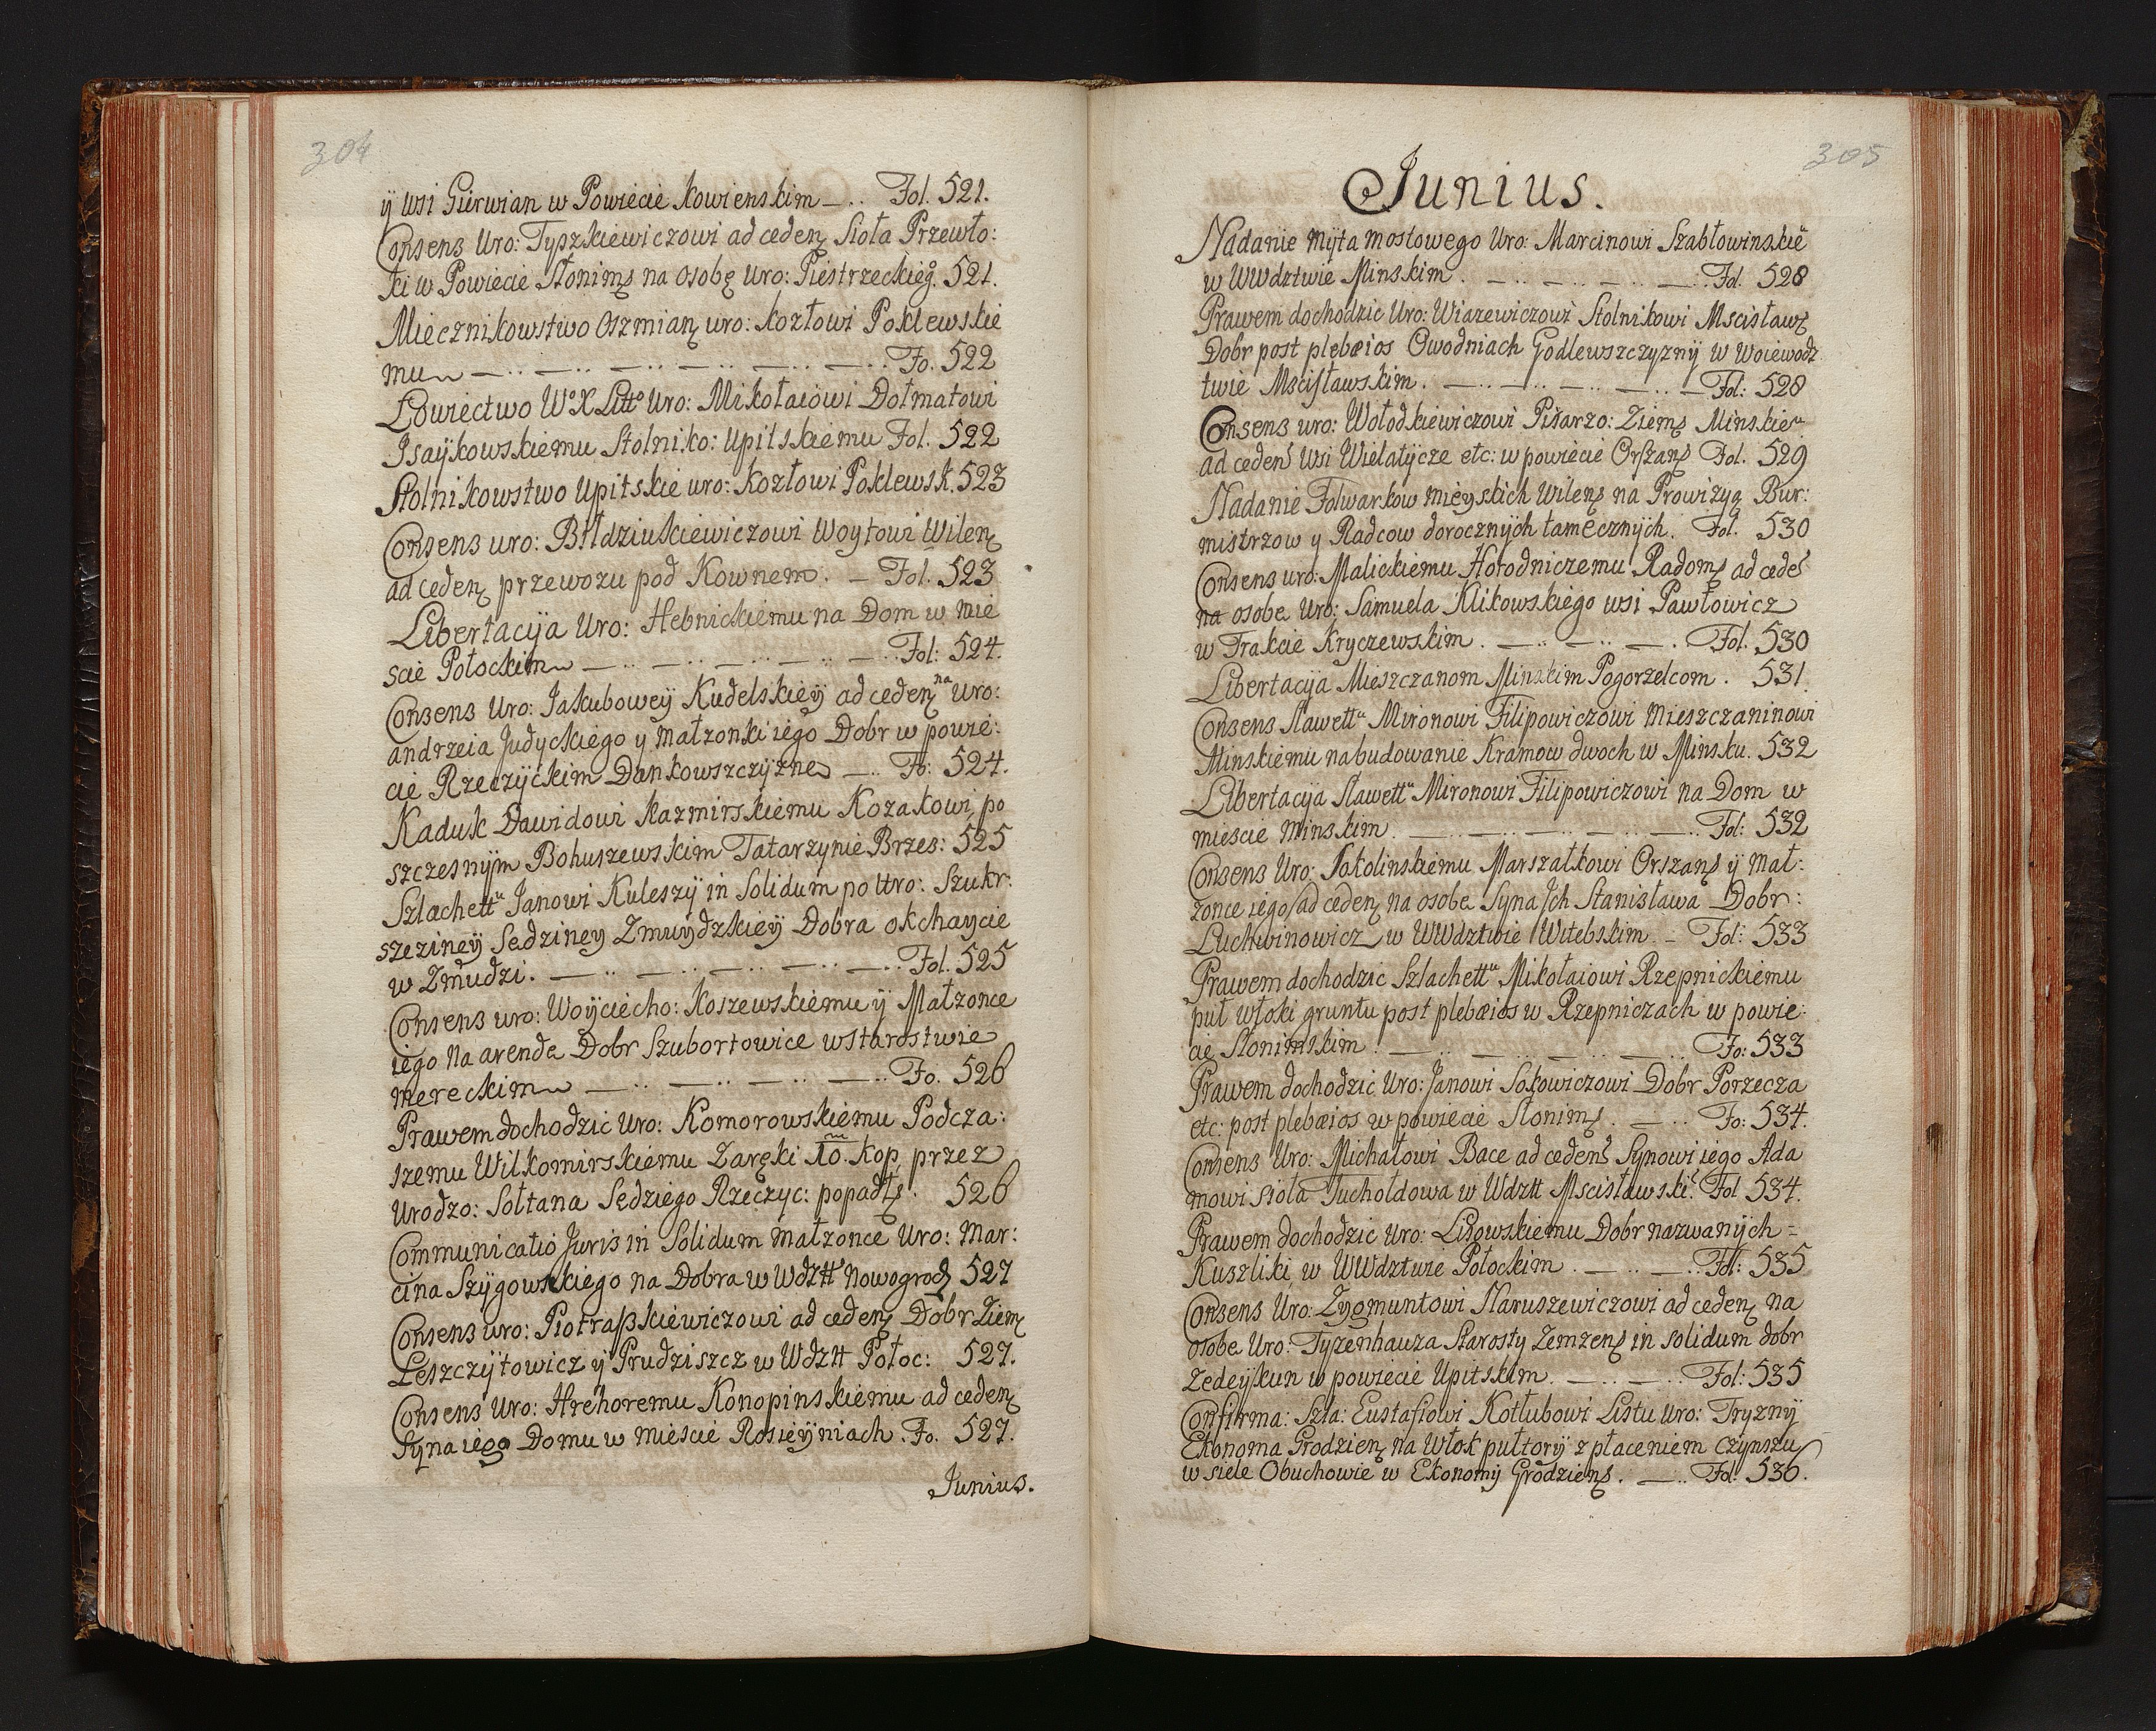 304
ÿ wsi Gierwian w Powiecie Kowienskim — .. Fol. 521.
Consens Uro: Tyszkiewiczowi ad ceden Siola Przewło:
ki w Powiecie Słonims na osobę Uro: Piestrzeckieg. 521.
Miecznikowstwo Oszmian uro: Kozłowi Poklewskie
mu — .. — .. — .. — .. — .. — .. Fo. 522
Łowiectwo W° X Litt° Uro: Mikołaiowi Dołmatowi
Isaÿkowskiemu Stolniko: Upitskiemu Fol. 522
Stolnikowstwo Upitskie uro: Kozłowi Poklewsk. 523
Consens uro: Bildziukiewiczowi Woytowi Wilen
ad ceden przewozu pod Kownem. — Fol. 523
Libertacÿa Uro: Hebnickiemu na Dom w mie
scie Połockim — .. — .. — .. — .. — .. Fol: 524.
Consens Uro: Jakuboweÿ Kudelskieÿ ad ceden na Uro:
andrzeia Judyckiego y małzonki iego Dobr w powie:
cie Rzeczÿckim Dankowszczÿzne — .. Fo: 524.
Kaduk Dawidowi Kazmirskiemu Kozakowi, po
szczesnÿm Bohuszewskim Tatarzynie Brzes: 525
Szlachett͞u Janowi Kuleszÿ in Solidum po Uro: Szukr:
szezineÿ Sedziney Zmuÿdzkieÿ Dobra okchaycie
w Zmudzi. — .. — .. — .. — .. — .. Fol. 525
Consens uro: Woÿciecho: Koszewskiemu ÿ Małzonce
iego na arende Dobr Szubortowice w starostwie
mereckim — .. — .. — .. — .. Fo. 526
Prawem dochodzic Uro: Komorowskiemu Podcza:
szemu Wilkomirskiemu Zaręki 10. Kop przez
Urodzo: Sołtana Sędziego Rzeczyc: popadłs. 526
Communicatio Juris in Solidum małzonce Uro: Mar:
cina Szÿgowskiego na Dobra w Wdztt Nowogrod 527
Consens uro: Piotraszkiewiczowi ad ceden Dobr Ziem
Leszczÿtowicz ÿ Prudziszcz w Wdztt Połoc: 527.
Consens Uro: Hrehoremu Konopinskiemu ad ceden
Syna iego Domu w mieście Rosieÿniach. Fo. 527.
Junius.
305
Junius.
Nadanie mÿta mostowego Uro: Marcinowi Szabłowinskie
w WWdztwie Minskim. — .. — .. — .. — .. Fol. 528
Prawem dochodzic Uro: Wiazewiczowi Stolnikowi Mscisławs
Dobr post plebæios Owodniach Godlewszczyznÿ w Woiewodz
twie Mscisławskim. — .. — .. — .. — .. — Fol: 528
Consens uro: Wołodkiewiczowi Pisarzo: Ziems Minskie͞u
ad cedens Wsi Wielatÿcze etc: w powiecie Orszans Fol. 529
Nadanie Folwarkow mieÿskich Wilens na Prowizyą Bur:
mistrzow y Radcow dorocznÿch tamecznÿch. Fol. 530
Consens uro: Malickiemu Horodniczemu Radoms ad cedes
na osobe Uro: Samuela Klikowskiego wsi Pawłowicz
w Trakcie Kryczewskim. — .. — .. — . Fol. 530
Libertacÿa Mieszczanom Minskim Pogorzelcom. 531.
Consens Sławett͞u Mironowi Filipowiczowi Mieszczaninowi
Minskiemu na budowanie Kramow dwoch w Minsku. 532
Libertacÿa Sławett͞u Mironowi Filipowiczowi na Dom w
mieście Minskim. — .. — .. — .. — .. — .. Fol: 532
Consens Uro: Sokolinskiemu Marszałkowi Orszans ÿ Mał:
zonce iego ad ceden na osobe Syna Jch Stanisława Dobr:
Luchwinowicz w WWdztwie Witebskim. — Fol: 533
Prawem dochodzic Szlachett͞u Mikołaiowi Rzepnickiemu
puł włoki gruntu post plebæios w Rzepniczach w powie:
cie Słonimskim. — .. — .. — .. — .. Fo: 533
Prawem dochodzic Uro: Janowi Sokowiczowi Dobr Porzecza
etc: post plebæios w powiecie Słonims. — .. Fo: 534.
Consens Uro: Michałowi Bace ad cedens Synowi iego Ada
mowi sioła Sucholdowa w Wdztt Mscisławskis Fol 534.
Prawem dochodzic Uro: Lisowskiemu Dobr nazwanÿch =
Kuszliki w WWdztwie Połockim. — .. — .. Fol: 535
Consens Uro: Zygmuntowi Naruszewiczowi ad ceden na
osobe Uro: Tyzenhauza Starosty Zemzens in solidum dobr
Zedeÿkun w powiecie Upitskim. — .. — .. Fol: 535
Confirma: Szla: Eustafiowi Kotłubowi Listu Uro: Tryznÿ
Ekonoma Grodzien na Włok pułtorÿ z płaceniem czynszu
w siele Obuchowie w Ekonomÿ Grodziens. — .. Fol. 536.